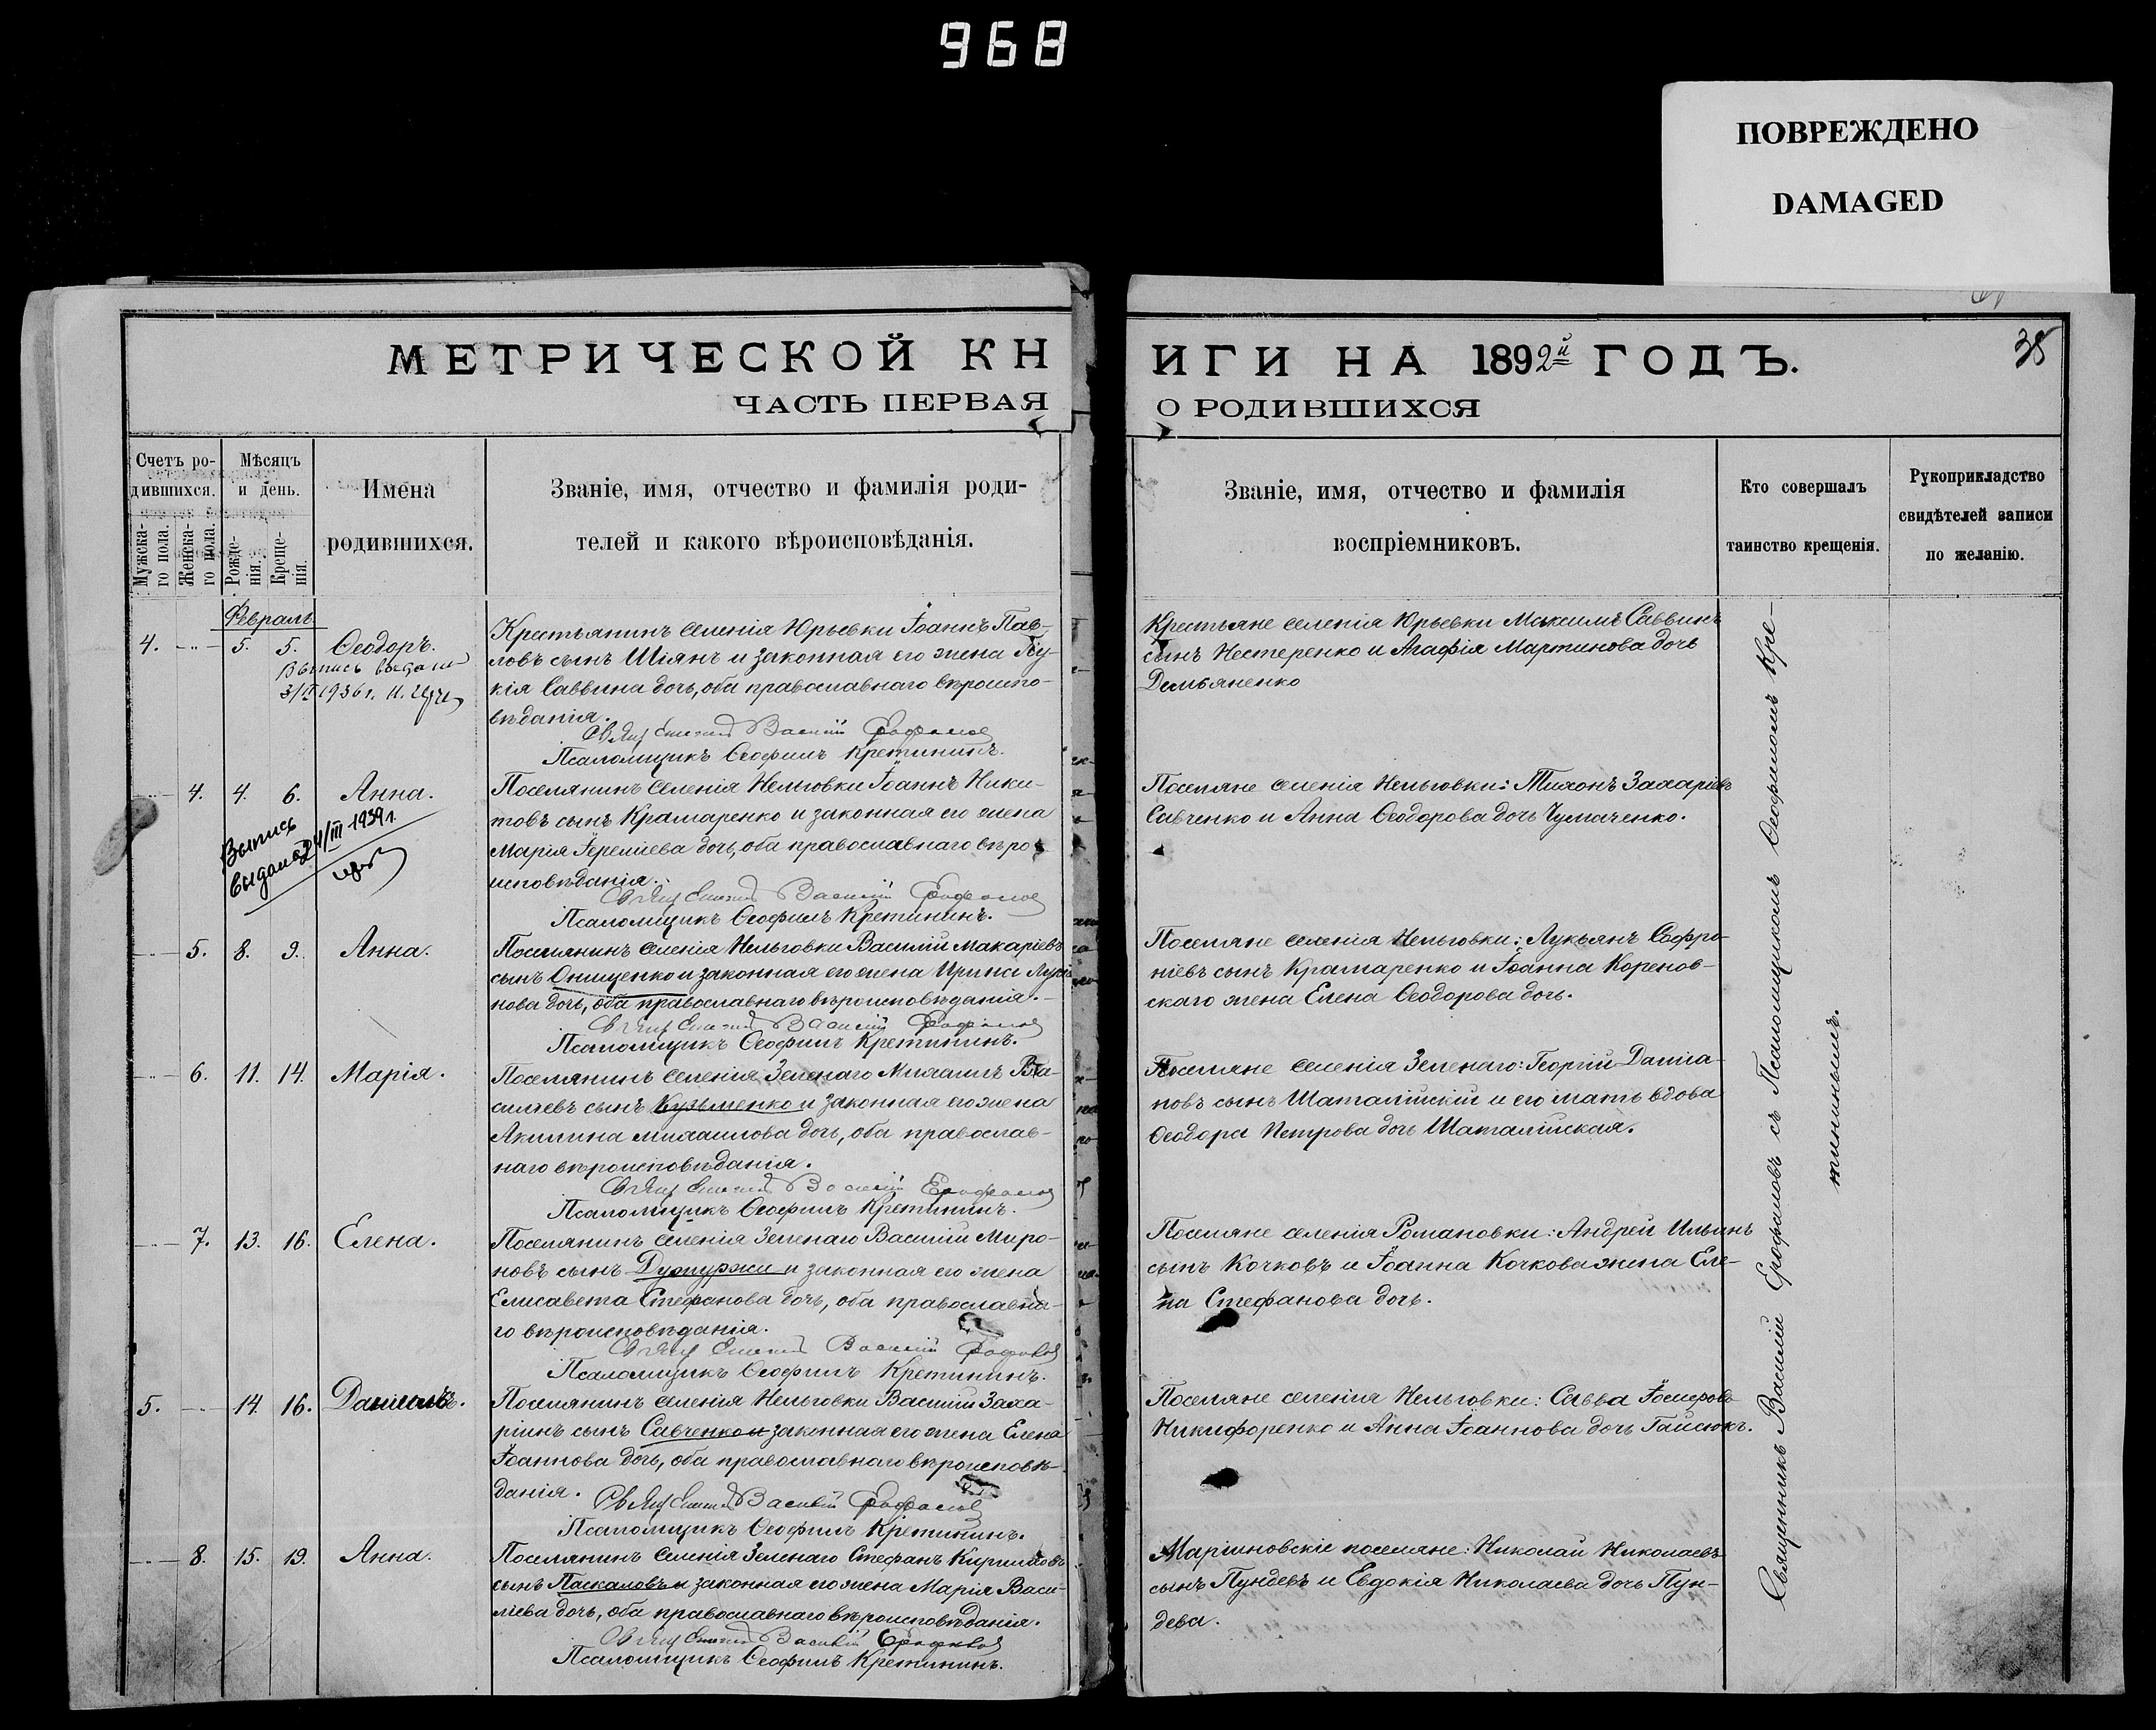 968
ПОВРЕЖДЕНО
DAMAGED
МЕТРИЧЕСКОЙ КН
ИГИ НА 1892й ГОДЪ.
38
ЧАСТЬ ПЕРВАЯ
О РОДИВШИХСЯ
Счетъ ро-
дившихся.
Мужска-
го пола.
Женска-
го пола.
Мѣсяцъ
и день.
Рожде-
нія.
Креще-
нія.
Имена
родившихся.
Званіе, имя, отчество и фамилія роди-
телей и какого вѣроисповѣданія.
Званіе, имя, отчество и фамилія
воспріемниковъ.
Кто совершалъ
таинство крещенія.
Рукоприкладство
свидѣтелей записи
по желанію.
Февраль
4. 5. 5. Ѳеодоръ.
Выпись выдана
1936 г.
Крестьянинъ селенія Юрьевки Іоаннъ Пав-
ловъ сынъ Шіянъ и законная его жена
кія Саввина дочь, оба православнаго вѣроиспо-
вѣданія.
Священникъ Василій Ерофаловъ
Псаломщикъ Ѳеофилъ Кретининъ.
Крестьяне селенія Юрьевки Максимъ Саввинъ
сынъ Нестеренко и Агафія Мартинова дочь
Демьяненко
4. 4. 6. Анна.
Выпись
выдана 24/III-1939 г.
Поселянинъ селенія Нельговки Іоаннъ Ники-
товъ сынъ Крамаренко и законная его жена
Марія Іереміева дочь, оба православнаго вѣро
исповѣданія.
Священникъ Василій Ерофаловъ
Псаломщикъ Ѳеофилъ Кретининъ.
Поселяне селенія Нельговки: Тихонъ Захаріевъ
Савченко и Анна Ѳеодорова дочь Чумаченко.
5. 8. 9. Анна.
Поселянинъ селенія Нельговки Василій Макаріевъ
сынъ Онищенко и законная его жена Ирина
нова дочь, оба православнаго вѣроисповѣданія.
Священникъ Василій Ерофаловъ
Псаломщикъ Ѳеофилъ Кретининъ.
Поселяне селенія Нельговки: Лукьянъ Софро-
ніевъ сынъ Крамаренко и Іоанна Коренов-
скаго жена Елена Ѳеодорова дочь.
6. 11. 14. Марія.
Поселянинъ селенія Зеленаго Михаилъ Ва-
силіевъ сынъ Кузьменко и законная его жена
Акилина Михаилова дочь, оба православ-
наго вѣроисповѣданія.
Священникъ Василій Ерофаловъ
Псаломщикъ Ѳеофилъ Кретининъ.
Поселяне селенія Зеленаго: Георгій Даміа-
новъ сынъ Шаталійскій и его мать вдова
Ѳеодора Петрова дочь Шаталійская.
7. 13. 16. Елена.
Поселянинъ селенія Зеленаго Василій Миро-
новъ сынъ Дужуржи и законная его жена
Елисавета Стефанова дочь, оба православна-
го вѣроисповѣданія.
Священникъ Василій Ерофаловъ
Псаломщикъ Ѳеофилъ Кретининъ.
Поселяне селенія Романовки: Андрей Ильинъ
сынъ Кочковъ и Іоанна Кочкова жена Еле-
на Стефанова дочь.
5. 14. 16. Даніилъ.
Поселянинъ селенія Нельговки Василій Заха-
ріинъ сынъ Савченко и законная его жена Елена
Іоаннова дочь, оба православнаго вѣроисповѣ-
данія.
Священникъ Василій Ерофаловъ
Псаломщикъ Ѳеофилъ Кретининъ.
Поселяне селенія Нельговки: Савва Іосифовъ
Никифоренко и Анна Іоаннова дочь Гайсюкъ.
8. 15. 19. Анна.
Поселянинъ селенія Зеленаго Стефанъ Кирилловъ
сынъ Паскаловъ и законная его жена Марія Васи-
ліева дочь, оба православнаго вѣроисповѣданія.
Священникъ Василій Ерофаловъ
Псаломщикъ Ѳеофилъ Кретининъ.
Маріиновскіе поселяне: Николай Николаевъ
сынъ Пундевъ и Евдокія Николаева дочь Пун-
дева.
Священникъ Василій Ерофаловъ съ Псаломщикомъ Ѳеофиломъ Кре-
тининымъ.